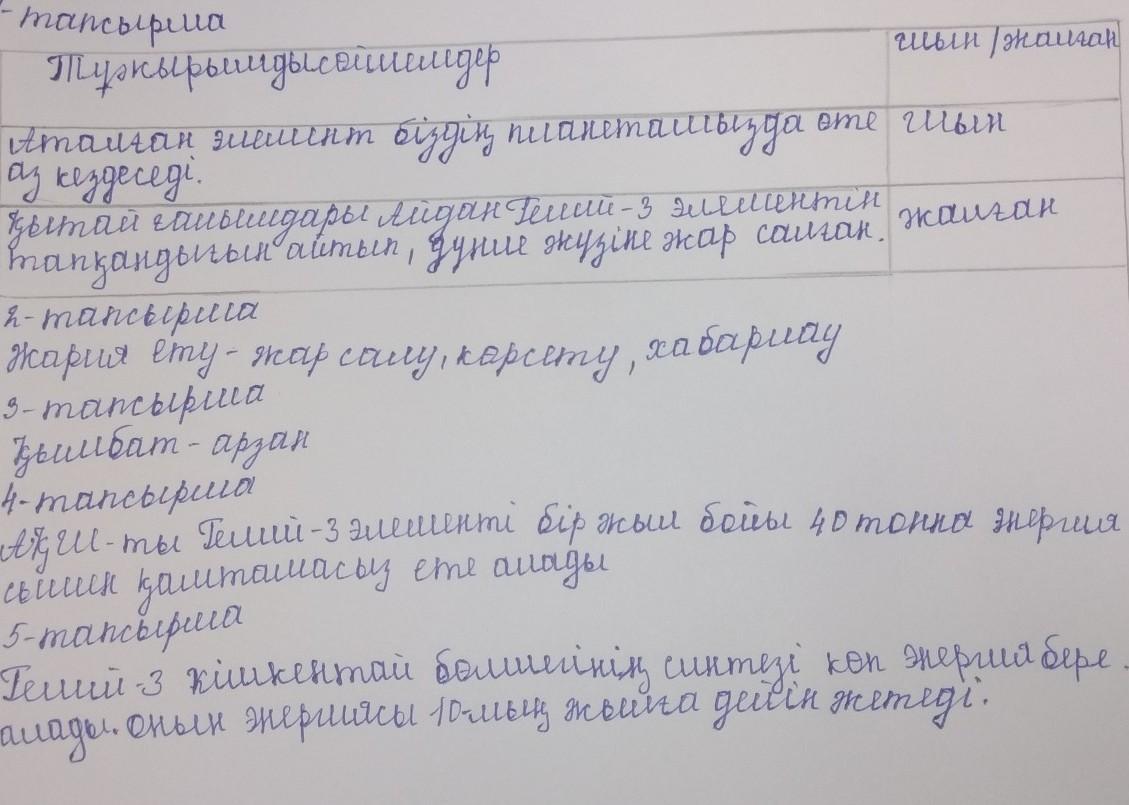 - тапсырма
Тұжырымды сөйлемдер
шын / жалған
Аталған элемент біздің планетамызда өте
аз кездеседі.
шын
Қытай ғалымдары Айдан Гелий-3 элементін
тапқандығын айтып, дүние жүзіне жар салған.
жалған
2-тапсырма
Жария ету - жар салу, көрсету, хабарлау
3-тапсырма
Қымбат - арзан
4-тапсырма
АҚШ-ты Гелий-3 элементі бір жыл бойы 40 тонна энергия
сымен қамтамасыз ете алады
5-тапсырма
Гелий-3 кішкентай бөлшегінің синтезі көп энергия бере
алады. Оның энергиясы 10-мың жылға дейін жетеді.